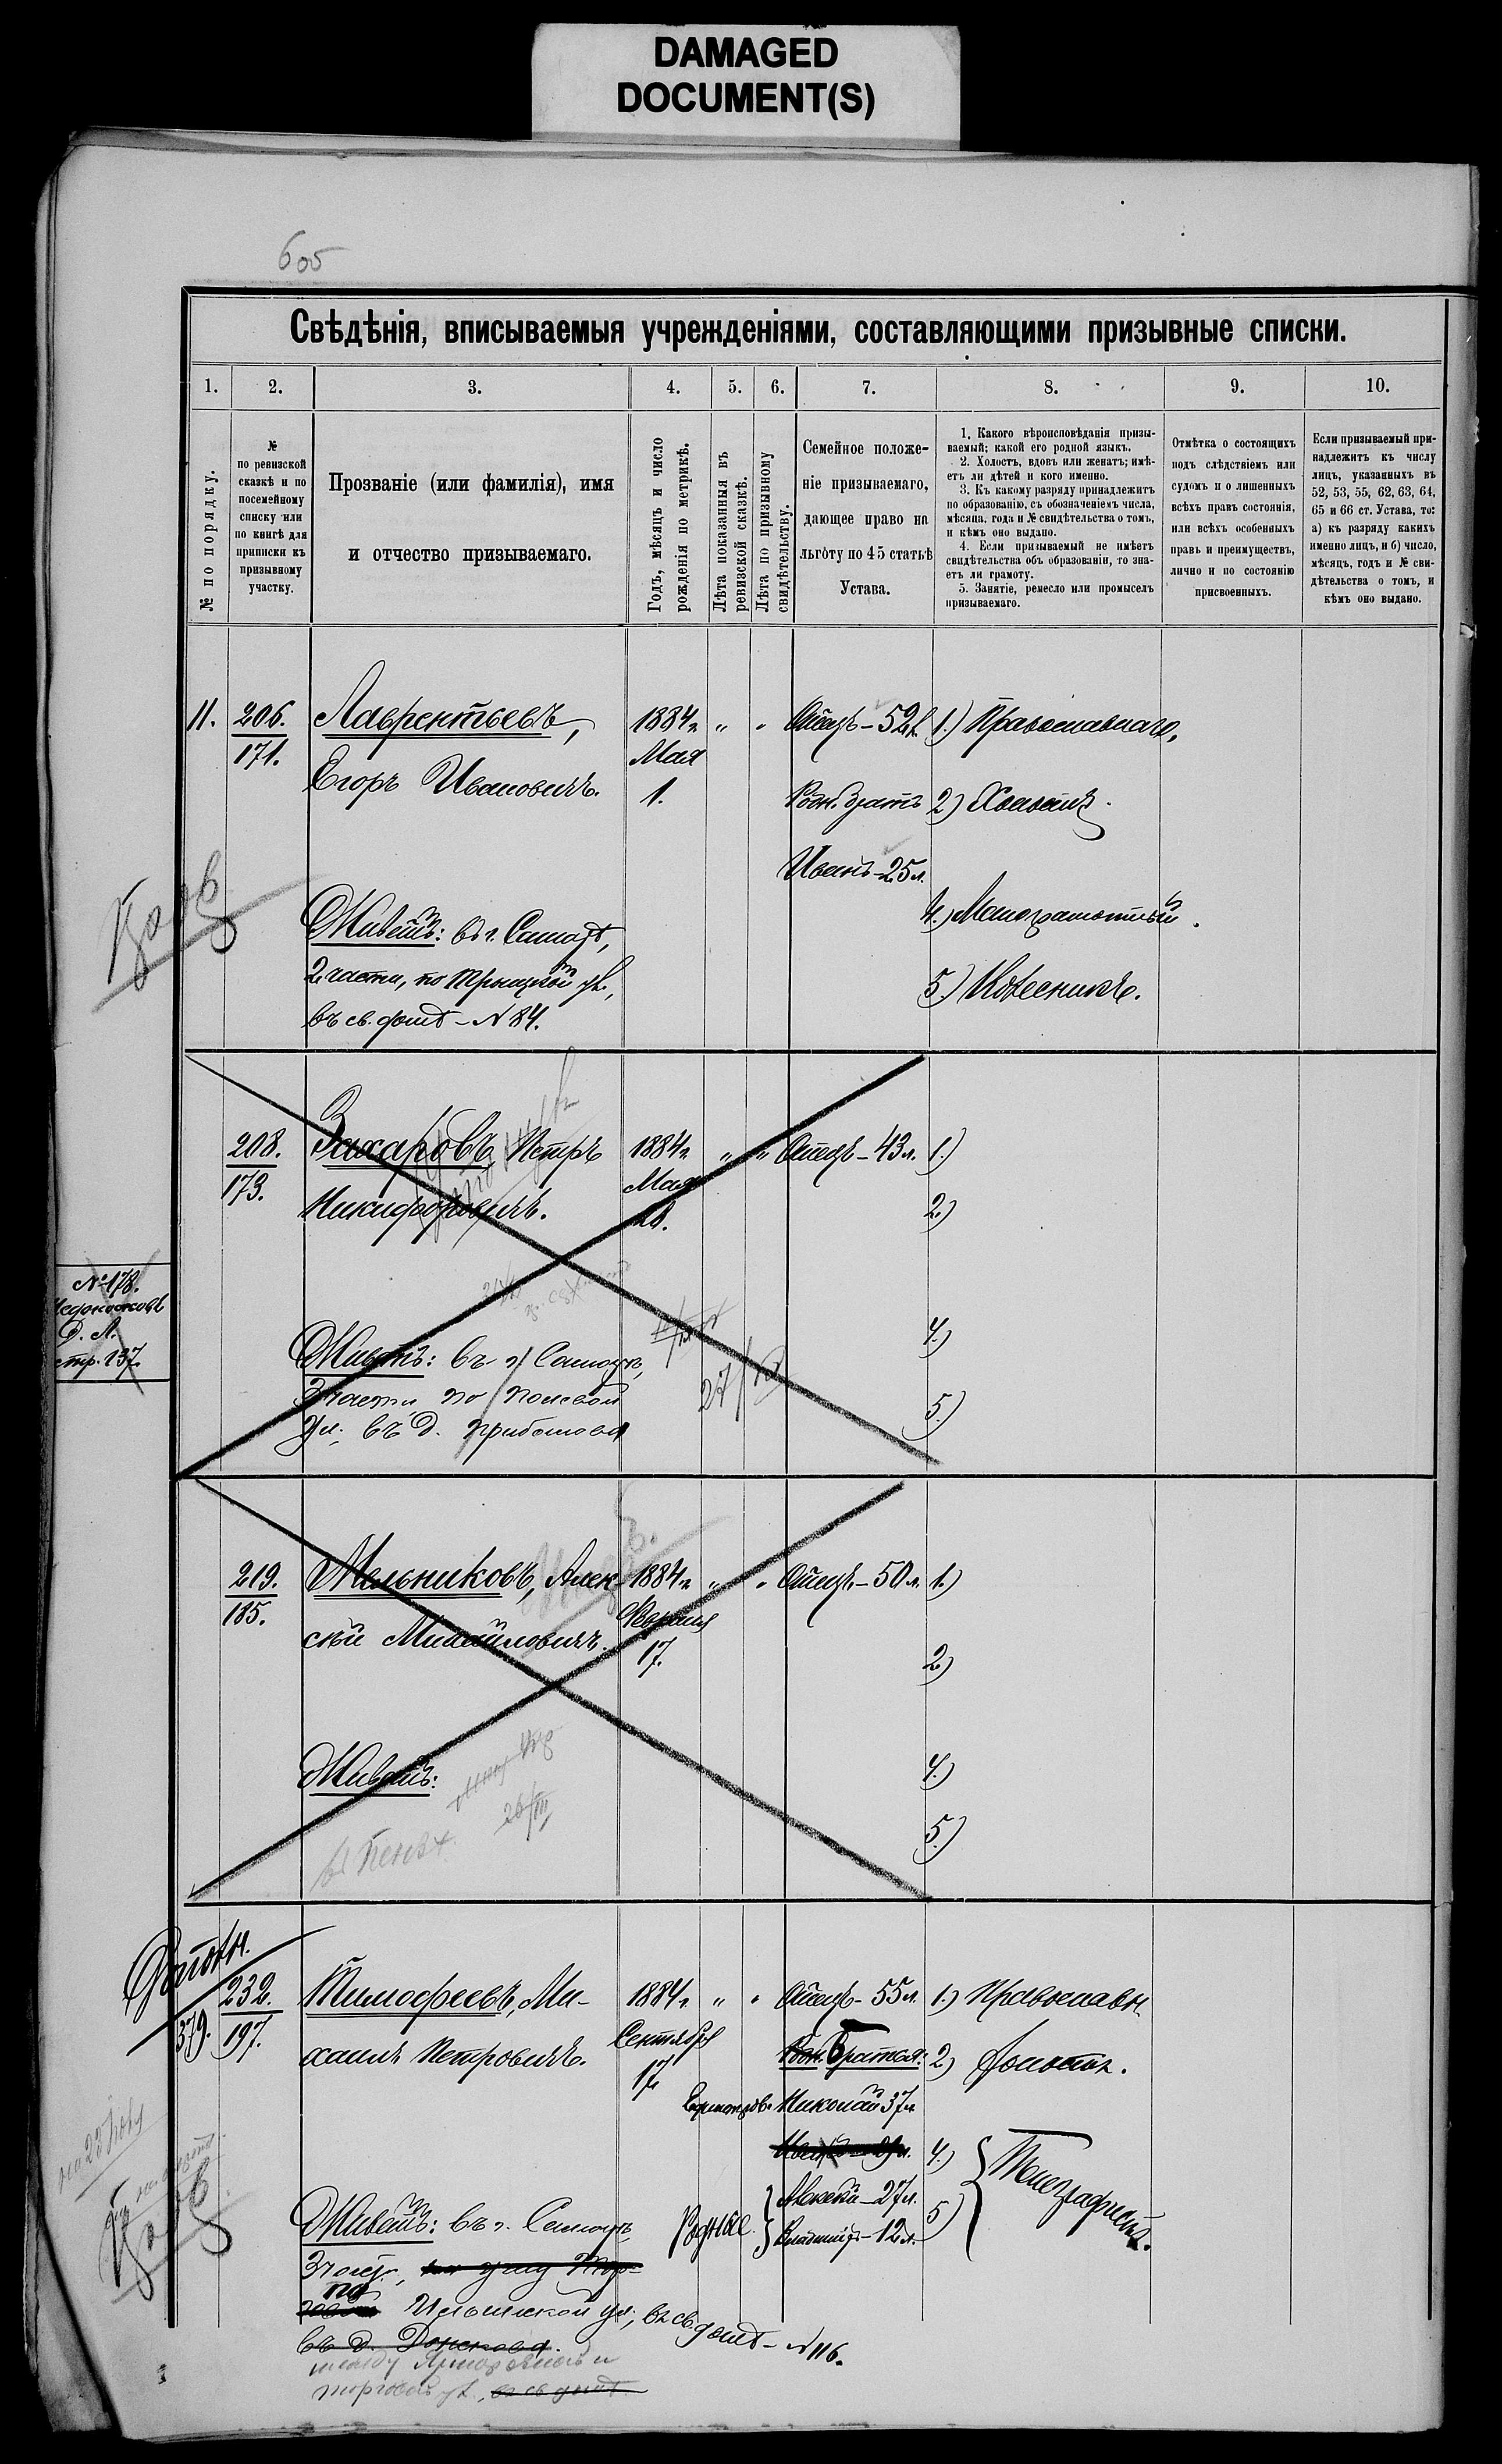 DAMAGED
DOCUMENT(S)
605
Свѣдѣнія, вписываемыя учрежденіями, составляющими призывные списки.
1. 2. 3. 4. 5. 6. 7. 8. 9. 10.
№ по порядку.
№
по ревизской
сказкѣ и по
посемейному
списку или
по книгѣ для
приписки къ
призывному
участку.
Прозваніе (или фамилія), имя
и отчество призываемаго.
Годъ, мѣсяцъ и число
рожденія по метрикѣ.
Лѣта показанныя въ
ревизской сказкѣ.
Лѣта по призывному
свидѣтельству.
Семейное положе-
ніе призываемаго,
дающее право на
льготу по 45 статьѣ
Устава.
1. Какого вѣроисповѣданія призы-
ваемый; какой его родной языкъ.
2. Холостъ, вдовъ или женатъ; имѣ-
етъ ли дѣтей и кого именно.
3. Къ какому разряду принадлежитъ
по образованію, съ обозначеніемъ числа,
мѣсяца, года и № свидѣтельства о томъ,
и кѣмъ оно выдано.
4. Если призываемый не имѣетъ
свидѣтельства объ образованіи, то зна-
етъ ли грамоту.
5. Занятіе, ремесло или промыселъ
призываемаго.
Отмѣтка о состоящихъ
подъ слѣдствіемъ или
судомъ и о лишенныхъ
всѣхъ правъ состоянія,
или всѣхъ особенныхъ
правъ и преимуществъ,
лично и по состоянію
присвоенныхъ.
Если призываемый при-
надлежитъ къ числу
лицъ, указанныхъ въ
52, 53, 55, 62, 63, 64,
65 и 66 ст. Устава, то:
а) къ разряду какихъ
именно лицъ, и б) число,
мѣсяцъ, годъ и № сви-
дѣтельства о томъ, и
кѣмъ оно выдано.
11. 206. Лаврентьевъ, 1884 г. " " Отецъ – 52 л. 1.) Православнаго,
171. Егоръ Ивановичъ. Мая
1. Родн. братъ 2) Холостъ.
Иванъ – 25 л.
Живетъ: въ г. Самарѣ, 4.) Малограмотный.
2 части, по Троицкой ул.,
въ св. домѣ – N 84.
208. Захаровъ, Петръ 1884 г. " " Отецъ – 43 л. 1.)
173. Никифоровичъ. Мая
2)
№ 178.
Д. А.
стр. 137.
Живетъ: въ г. Самарѣ, 4.)
3 части, по Полевой 27/
ул. въ д. 5.)
219. Мельниковъ, Алек- 1884 г. " " Отецъ – 50 л. 1.)
185. сѣй Михайловичъ. Февраля
17. 2)
Живетъ: 4.)
26/III
въ Пензѣ 5.)
232. Тимофеевъ, Ми- 1884 г. " " Отецъ – 55 л. 1.) Православн.
379. 197. хаилъ Петровичъ. Сентября
17. Родн. Братья: 2) Холостъ.
Николай 37 л.
4.)
Алексѣй – 27 л. Телеграфистъ.
Живетъ: въ г. Самарѣ, Родные Владиміръ – 12 л. 5)
3 части, по
Ильинской ул., въ св. домѣ – N 116.
въ д. Донскова.